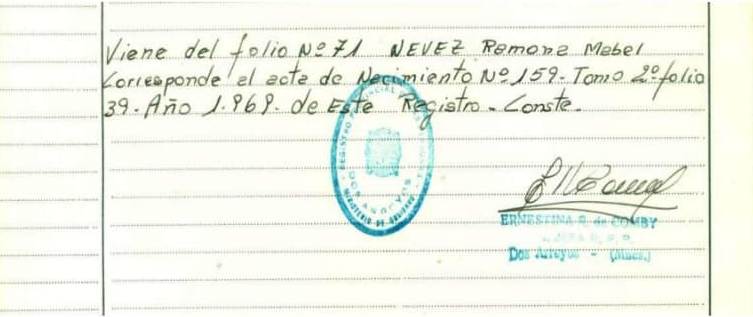 Viene del folio Nº 71 NEVEZ Ramona Mabel
Corresponde al acta de Nacimiento Nº 159 - Tomo 2º folio
39. Año 1.969. de Este Registro - Conste -
REGISTRO PROVINCIAL
DOS ARROYOS
MINISTERIO DE GOBIERNO
ERNESTINA R. de COMBY
Dos Arroyos - (Mnes.)